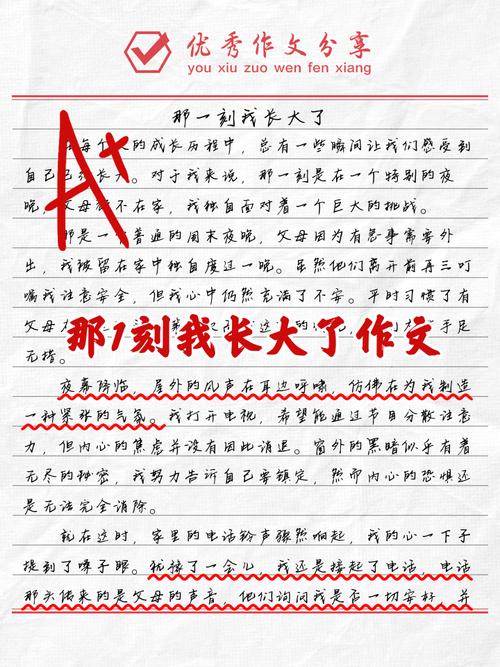 优秀作文分享
you xiu zuo wen fen xiang
那一刻我长大了
A+
每个 的成长历程中，总有一些瞬间让我们感受到
自己 长大。对于我来说，那一刻是在一个特别的夜
晚，父母 不在家，我独自面对着一个巨大的挑战。
那是一 普通的周末夜晚，父母因为有急事需要外
出，我被留在家中独自度过一晚。虽然他们离开前再三叮
嘱我注意安全，但我心中仍然充满了不安。平时习惯了有
父母 手足
那1刻我长大了作文
无措。
夜幕降临，屋外的风声在耳边呼啸，仿佛在为我制造
一种紧张的气氛。我打开电视，希望能通过节目分散注意
力，但内心的焦虑并没有因此消退。窗外的黑暗似乎有着
无尽的秘密，我努力告诉自己要镇定，然而内心的恐惧还
是无法完全消除。
就在这时，家里的电话铃声骤然响起，我的心一下子
提到了嗓子眼。犹豫了一会儿，我还是接起了电话，电话
那头传来的是父母的声音，他们询问我是否一切安好，并